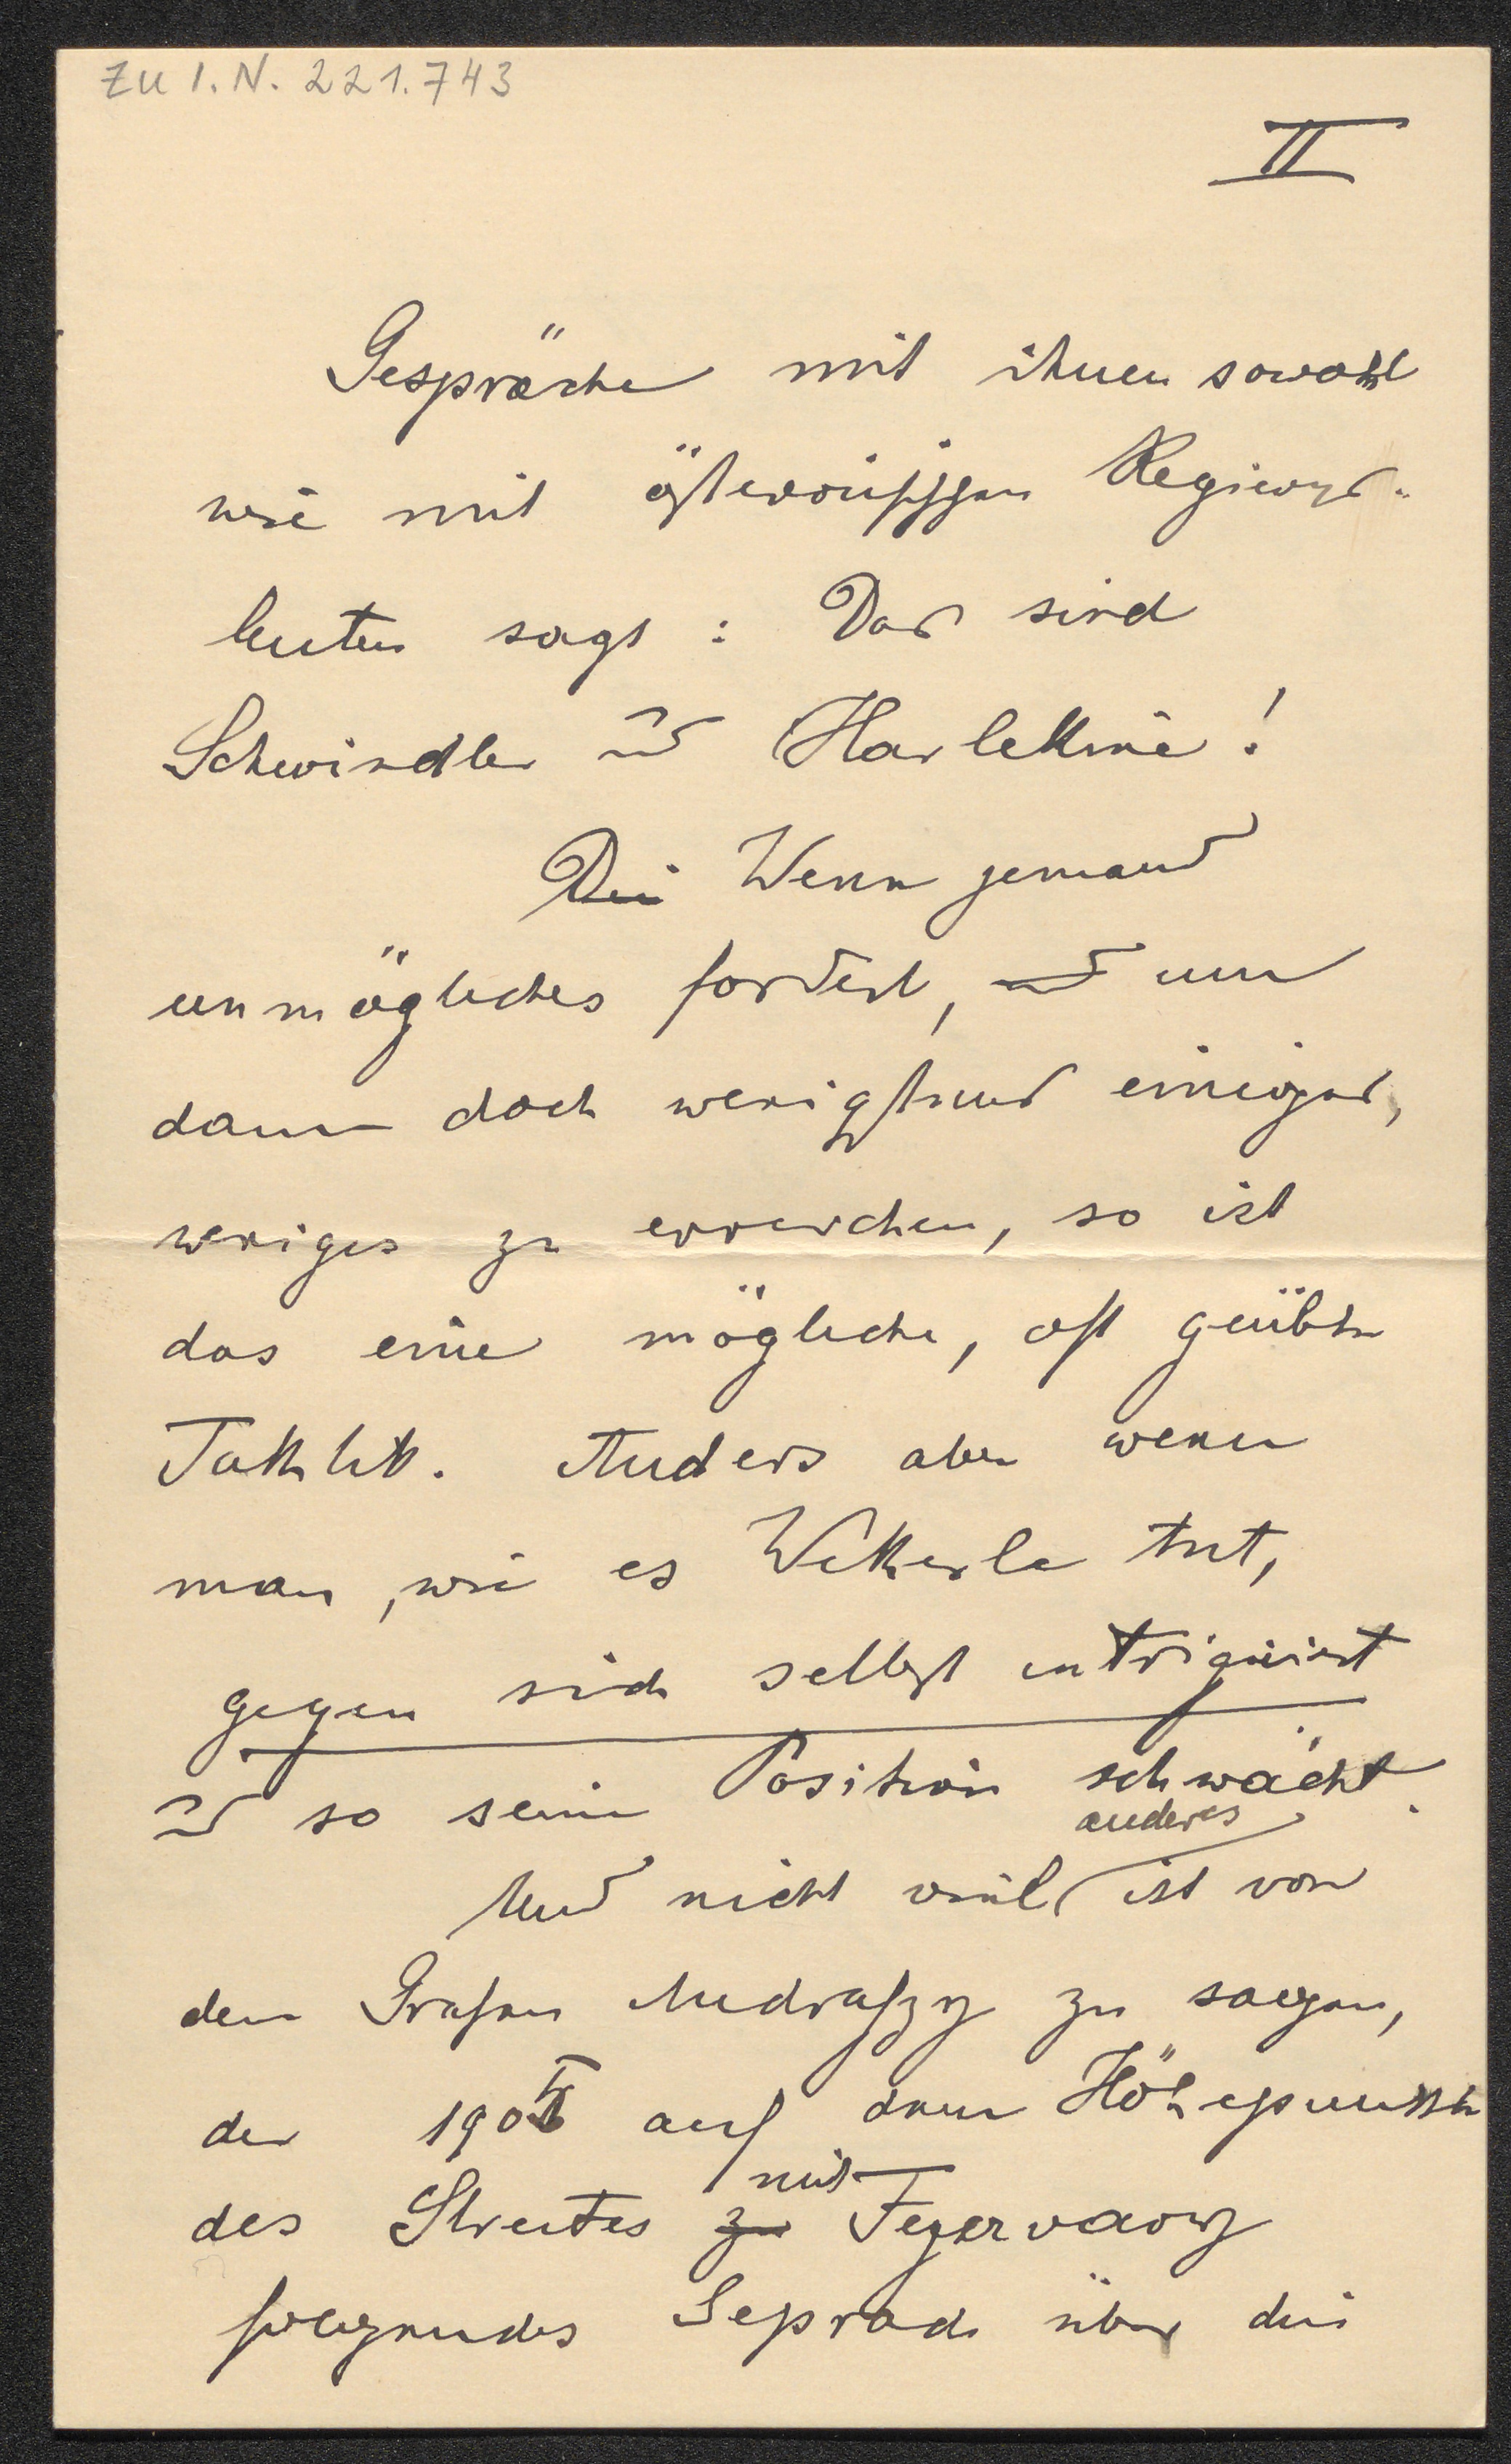 ZU I.N. 221.743
II
Gespräche mit ihnen sowohl
wie mit österreichischen Regierungs-
leuten sagt: Das sind
Schwindler und Harlekine!
Die Wenn jemand
unmögliches fordert, und um
dann doch wenigstens einiges,
weniges zu erreichen, so ist
das eine mögliche, oft geübte
Taktik. Anders aber wenn
man, wie es Wekerle tut,
gegen sich selbst intriguirt
und so seine Position schwächt.
anderes
Und nicht viel ist von
dem Grafen Andrassy zu sagen,
der auf dem Höhepunkte
mit
des Streites zu Fejervary
folgendes Gespräch über die